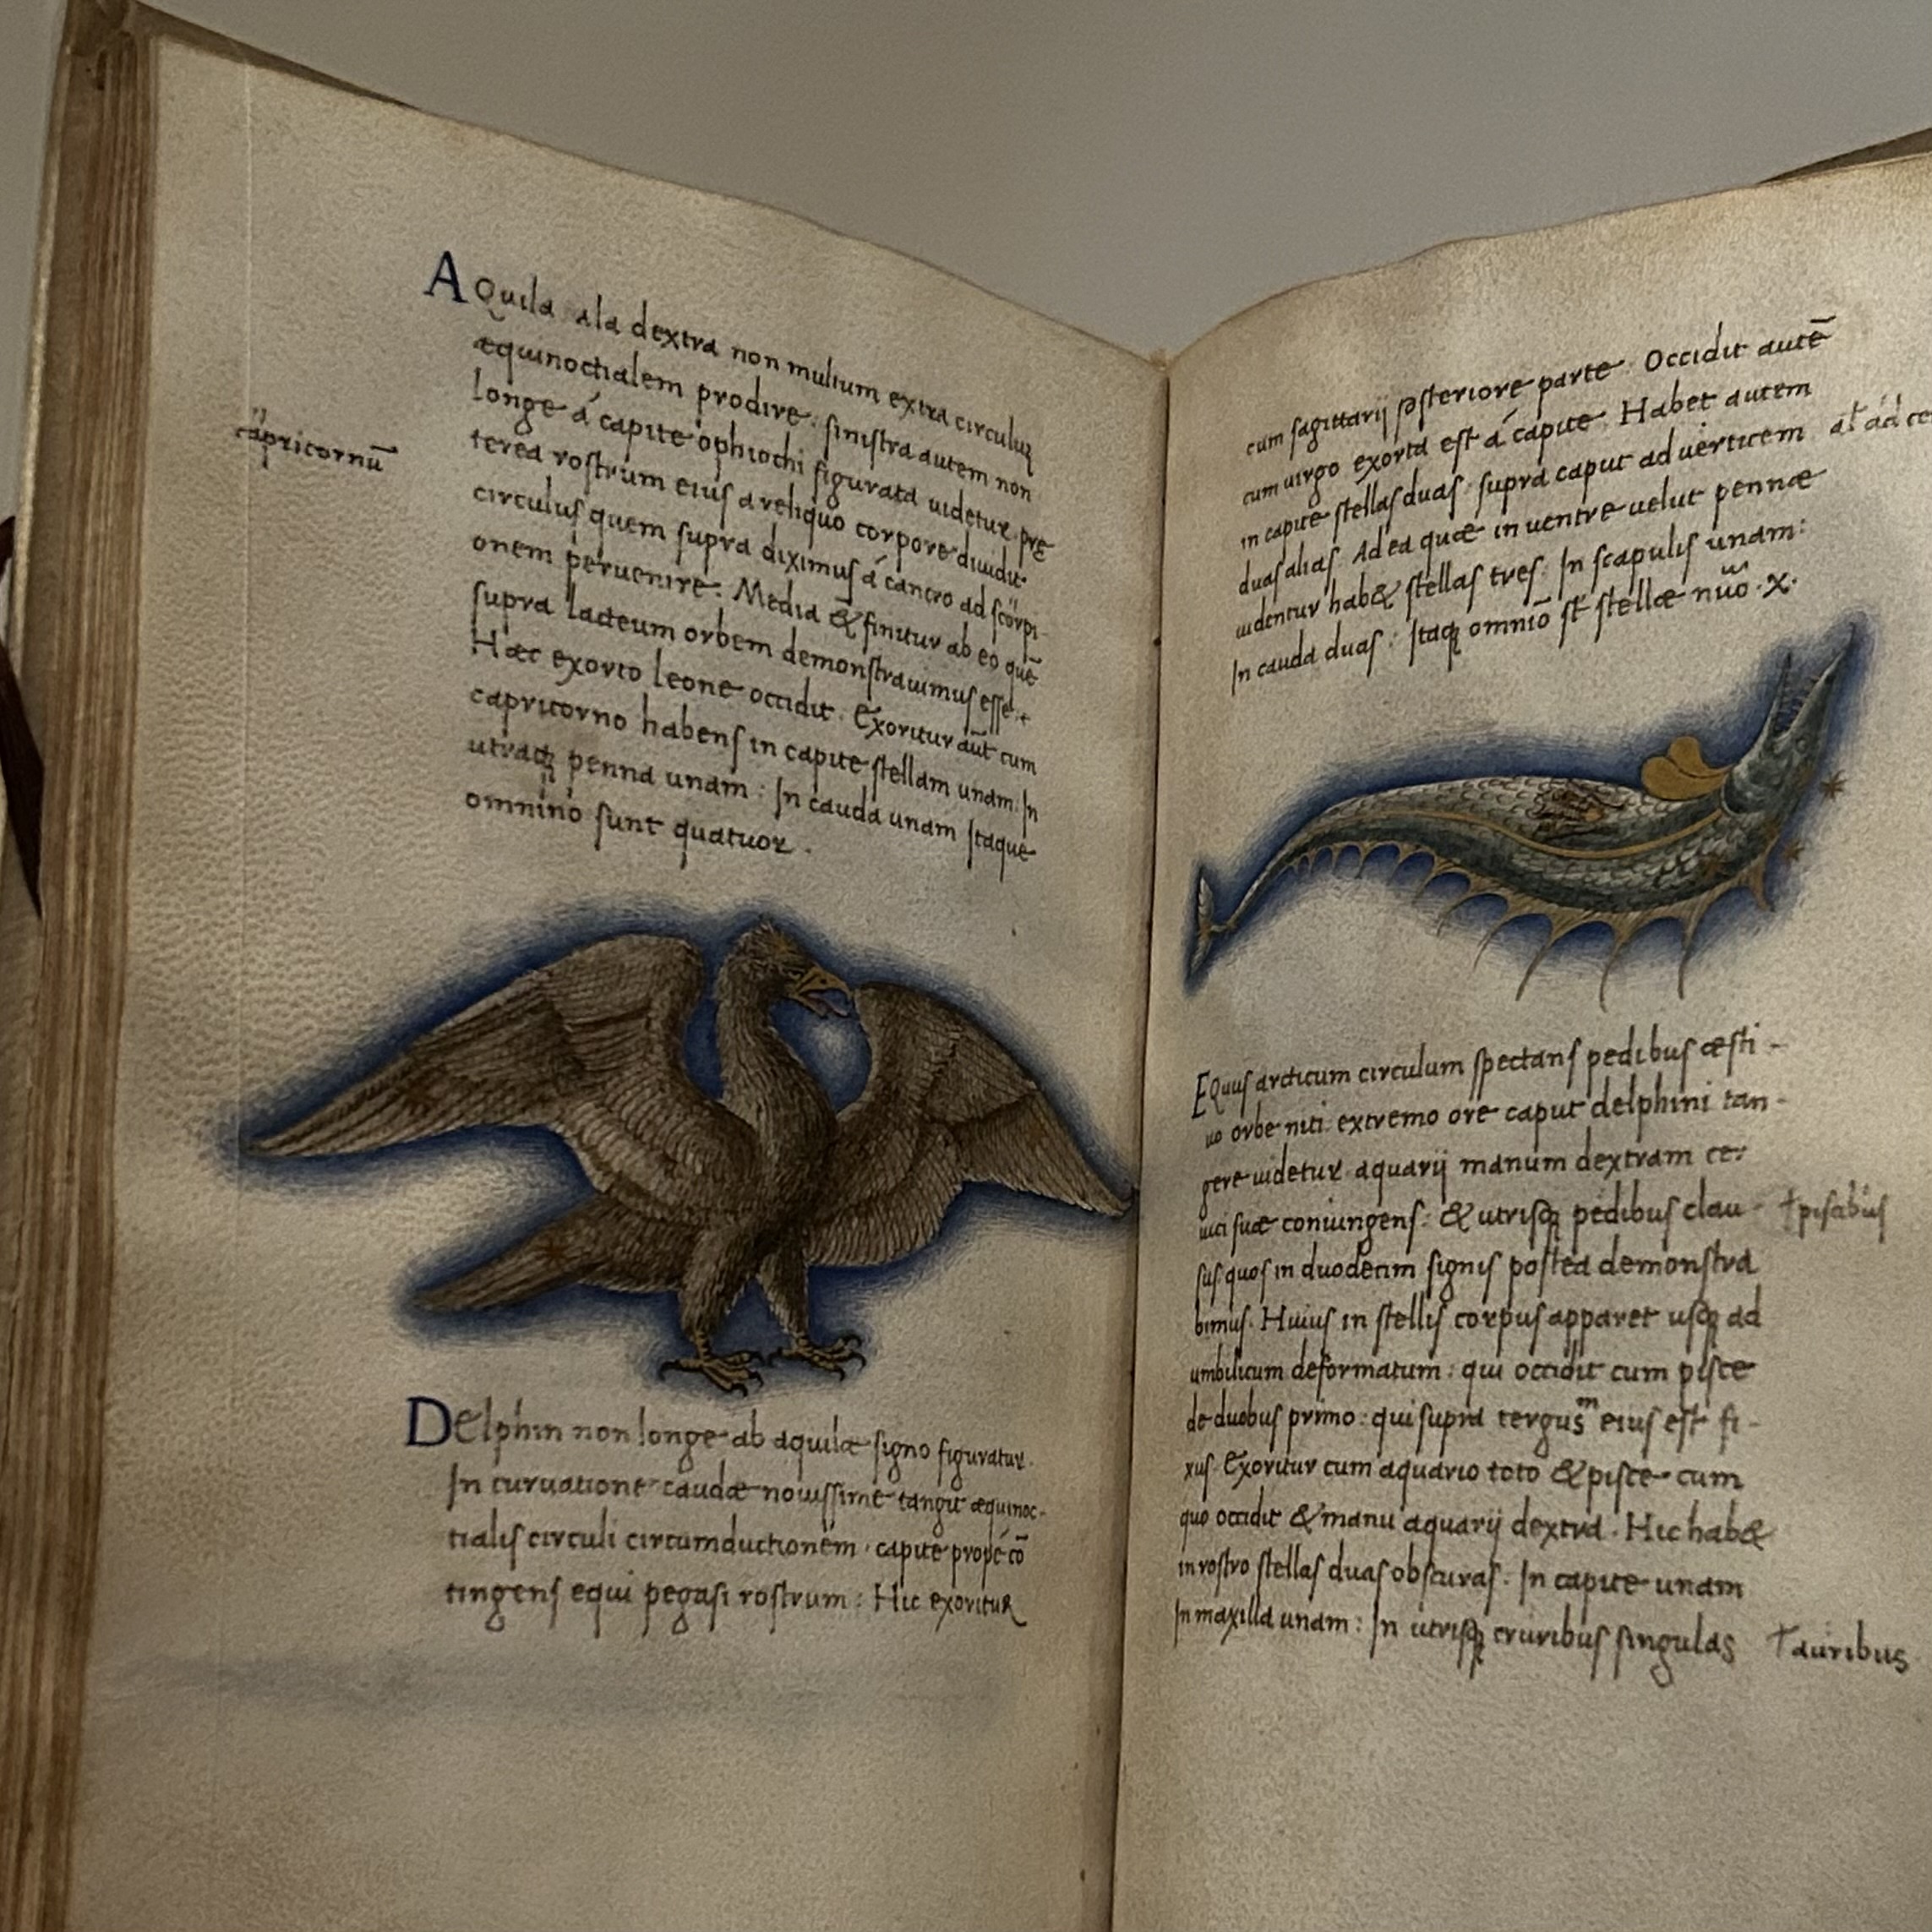 AQuila ala dextra non multum extra circuluȝ
æquinoctialem prodire: sinistra autem non
longe á capite ophiochi figurata uidetur. pre
capricornū
terea rostrum eius a reliquo corpore diuidit
circulus quem supra diximus á cancro ad scorpi-
onem peruenire: Media & finitur ab eo quē
supra lacteum orbem demonstrauimus esse.
Hæc exorto leone occidit. Exoritur aūt cum
capricorno habens in capite stellam unam. In
utraqꝫ penna unam: In cauda unam Itaque
omnino sunt quatuor.
Delphin non longe ab aquilæ signo figuratur.
In curuatione caudæ nouissime tangit æquinoc-
tialis circuli circumductionem. capite prope cō
tingens equi pegasi rostrum: Hic exoritur
cum sagittarij posteriore parte. Occidit autē
cum uirgo exorta est á capite. Habet autem
in capite stellas duas. supra caput ad uerticem
duas alias. Ad ea quæ in uentre uelut pennæ
uidentur hab& stellas tres. In scapulis unam:
In cauda duas: Itaqꝫ omniō st̄ stellæ nūo .x.
EQuus arcticum circulum spectans pedibus æsti-
uo orbe niti: extremo ore caput delphini tan-
gere uidetur aquarij manum dextram cer
uici suæ coniungens: & utrisqꝫ pedibus clau- †piscibus
sus. quos in duodecim signis postea demonstra
bimus. Huius in stellis corpus apparet usqꝫ ad
umbilicum deformatum: qui occidit cum pisce
de duobus primo: qui supra tergusᵐ eius est fi-
xus. Exoritur cum aquario toto & pisce cum
quo occidit & manu aquarij dextra. Hic hab&
in rostro stellas duas obscuras. In capite unam
In maxilla unam: In utrisqꝫ cruribus singulas †auribus